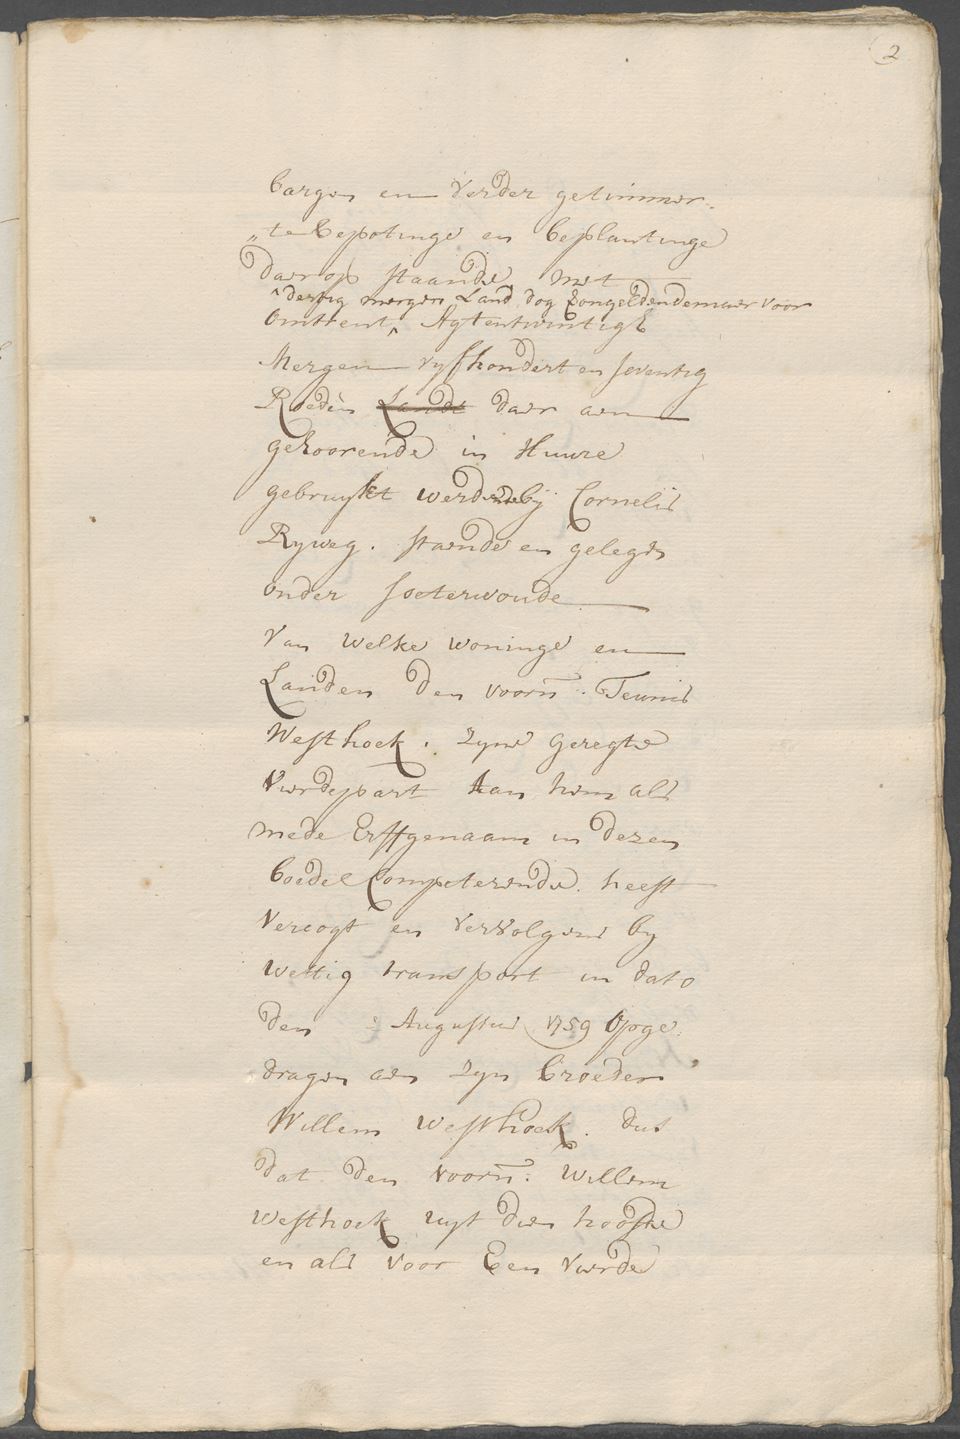 2
bargen en verder getimmer-
„te bepotinge en beplantinge
daer op staande, met
^ dertig mergen Land, dog Zongeldende maer voor
omtrent ^ Agtentwintigh
Mergen vyfhondert en seventig
Roeden Lande daer aen
gehoorende in Huure
gebruykt werdende bij Cornelis
Ryweg. staende en gelegen
onder soeterwoude
Van welke woninge en
Landen den voorn: Teunis
Westhoek. zyne geregte
Vierdepart Aan hem als
mede Erffgenaam in dezen
boedel Competerende. heeft
Vercogt en vervolgens by
wettig transport in dato
den Augustus 1759 Opge
dragen aen zyn broeder
Willem Westhoek. dus
dat den voorn: Willem
Westhoek uyt dien hoofde
en als voor Een vierde